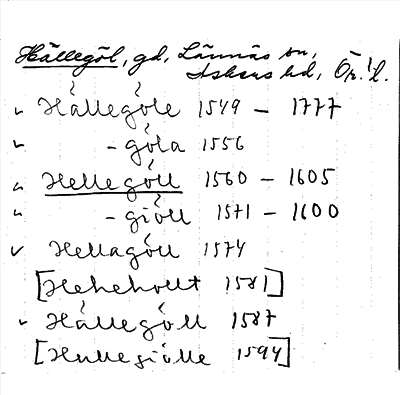 Hällegöl, gd, Lännäs sn,
Askers hd, Ör. l.
Hällegöle 1549 - 1777
- göla 1556
Hellegöll 1560 - 1605
- giöll 1571 - 1600
Hellagöll 1574
[Hehehollt 1581]
Hällegöll 1587
[Hullegiölle 1594]